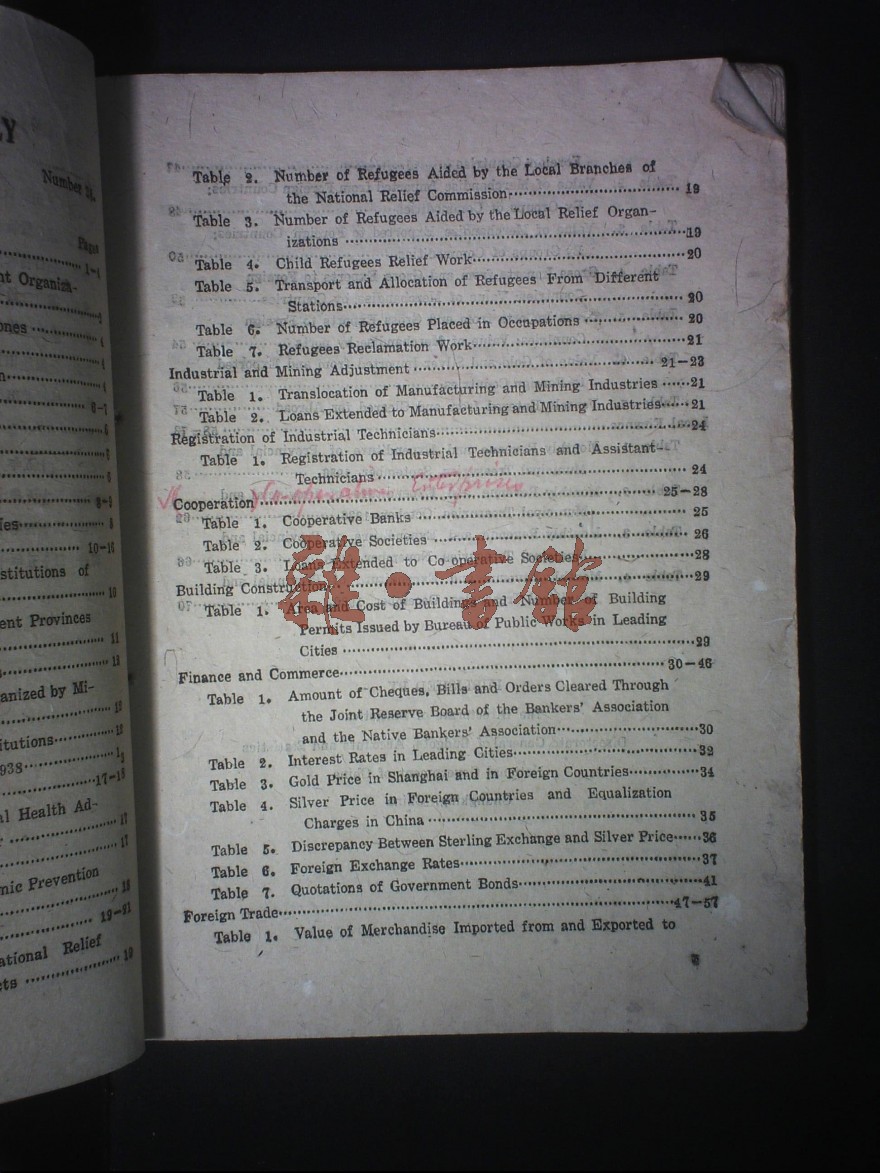 LY
Number 24.
Pages
1-4
nt Organiza-
ones
6-7
8-9
10-16
stitutions of
10
ent Provinces
11
anized by Mi-
titutions
938
17-18
al Health Ad-
17
17
mic Prevention
18
19-21
ational Relief
cts 19
Table 2. Number of Refugees Aided by the Local Branches of
the National Relief Commission 19
Table 3. Number of Refugees Aided by the Local Relief Organ-
izations 19
Table 4. Child Refugees Relief Work 20
Table 5. Transport and Allocation of Refugees From Different
Stations 20
Table 6. Number of Refugees Placed in Occupations 20
Table 7. Refugees Reclamation Work 21
Industrial and Mining Adjustment 21-23
Table 1. Translocation of Manufacturing and Mining Industries 21
Table 2. Loans Extended to Manufacturing and Mining Industries 21
Registration of Industrial Technicians 24
Table 1. Registration of Industrial Technicians and Assistant-
Technicians 24
Co-operative Enterprises
Cooperation 25-28
Table 1. Cooperative Banks 25
Table 2. Cooperative Societies 26
Table 3. Loans Extended to Co-operative Societies 28
雜·書館
Building Construction 29
Table 1. Area and Cost of Buildings and Number of Building
Permits Issued by Bureau of Public Works in Leading
Cities 29
Finance and Commerce 30-46
Table 1. Amount of Cheques, Bills and Orders Cleared Through
the Joint Reserve Board of the Bankers' Association
and the Native Bankers' Association 30
Table 2. Interest Rates in Leading Cities 32
Table 3. Gold Price in Shanghai and in Foreign Countries 34
Table 4. Silver Price in Foreign Countries and Equalization
Charges in China 35
Table 5. Discrepancy Between Sterling Exchange and Silver Price 36
Table 6. Foreign Exchange Rates 37
Table 7. Quotations of Government Bonds 41
Foreign Trade 47-57
Table 1. Value of Merchandise Imported from and Exported to